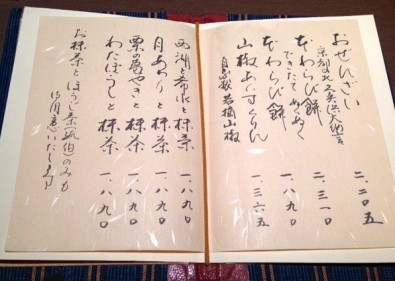 おぜんざい 二.二〇五
京都の
本わらび餅 二.三一〇
できたて
本わらび餅 一.八九〇
山椒あいすくりん 一.三六五
若摘山椒
西湖と希水と抹茶 一.八九〇
月あかりと抹茶 一.八九〇
栗の
やきと抹茶 一.八九〇
わたぼうしと抹茶 一.八九〇
お抹茶とほうじ茶
のみも
御用意いたします